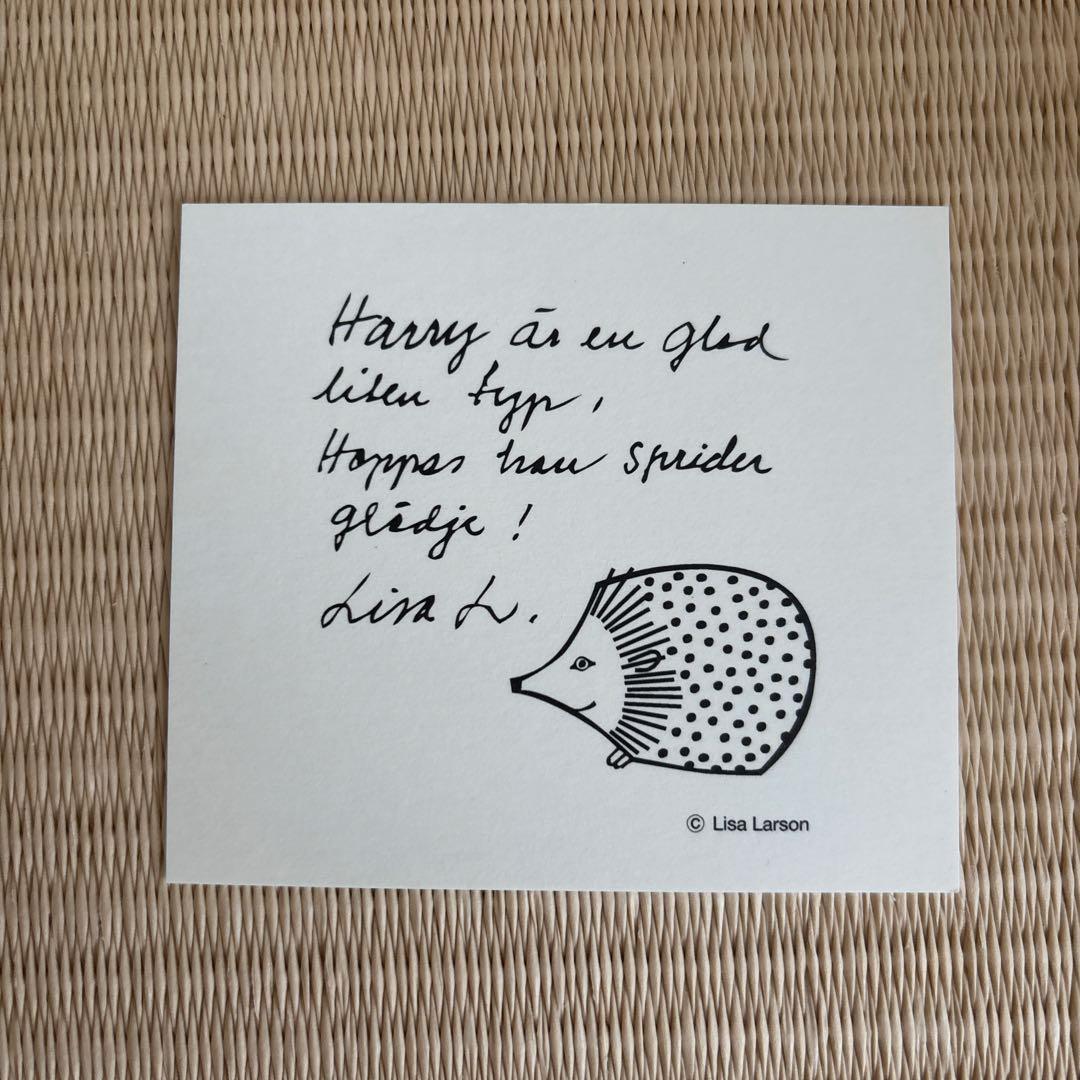 Harry är en glad
liten typ,
Hoppas han sprider
glädje!
Lisa L.
© Lisa Larson